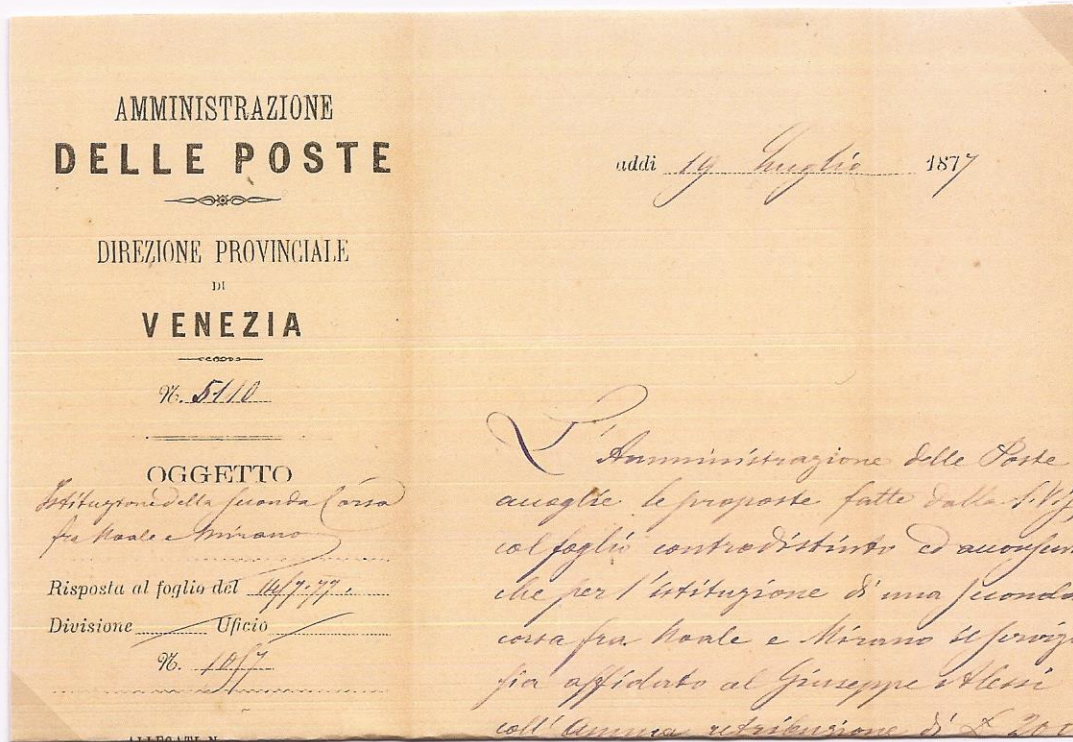 AMMINISTRAZIONE
DELLE POSTE
DIREZIONE PROVINCIALE
DI
VENEZIA
N. 5110
OGGETTO
Istituzione della seconda Corsa
fra Noale e Mirano
Risposta al foglio del 14/7.77.
Divisione Uficio
N.
ALLEGATI N.
addi 19 Luglio 1877
L'Amministrazione delle Poste
accoglie le proposte fatte dalla S.V.
col foglio controdistinto ed acconsen
che per l'istituzione di una seconda
corsa fra Noale e Mirano il serviz
sia affidato al Giuseppe Alessi
coll' annua retribuzione di £ 200